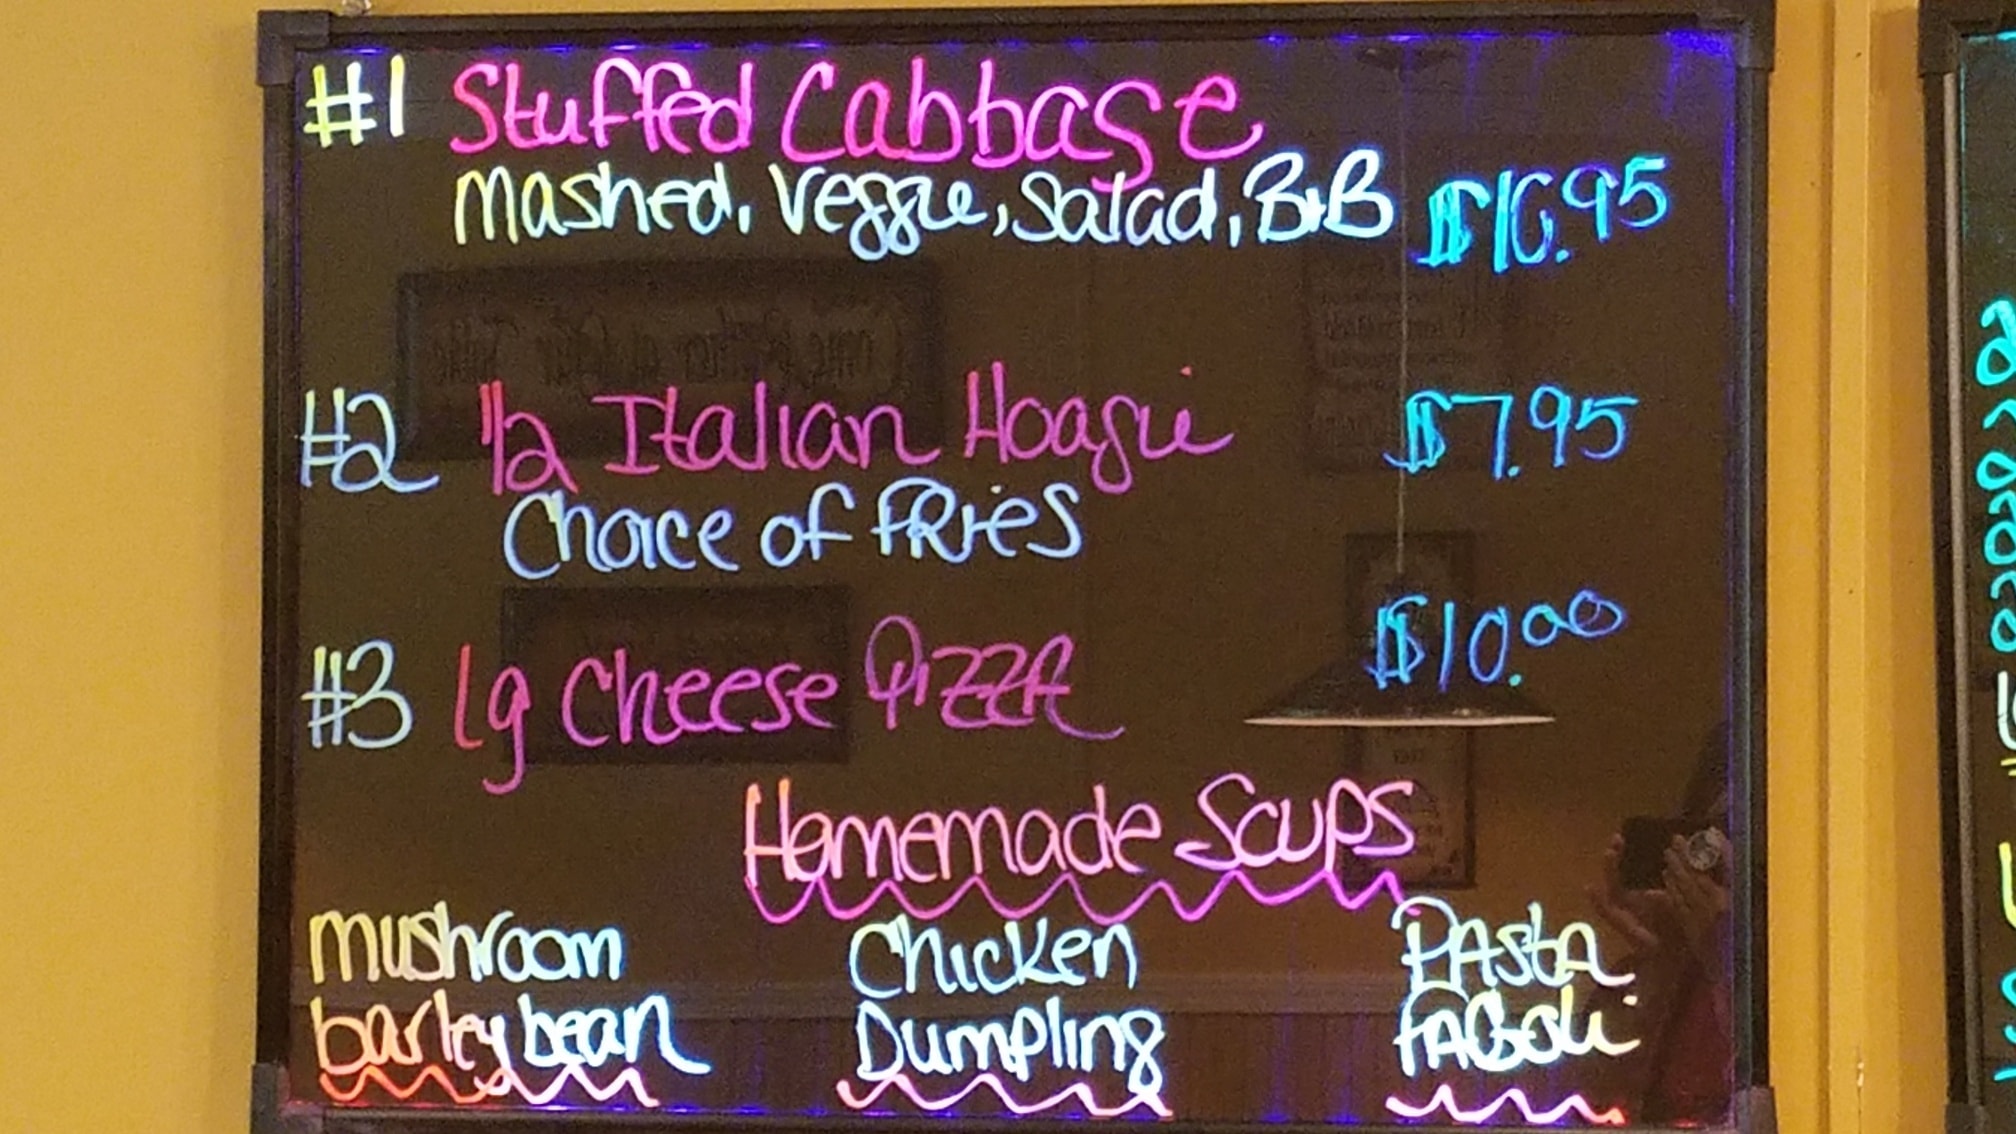 #1 Stuffed Cabbage
Mashed, Veggie, Salad, B+B $10.95
#2 1/2 Italian Hoagie $7.95
Choice of FRies
#3 Lg Cheese PizzA $10.00
Homemade Soups
Mushroom Chicken PAsta
barley bean Dumpling FAGoli